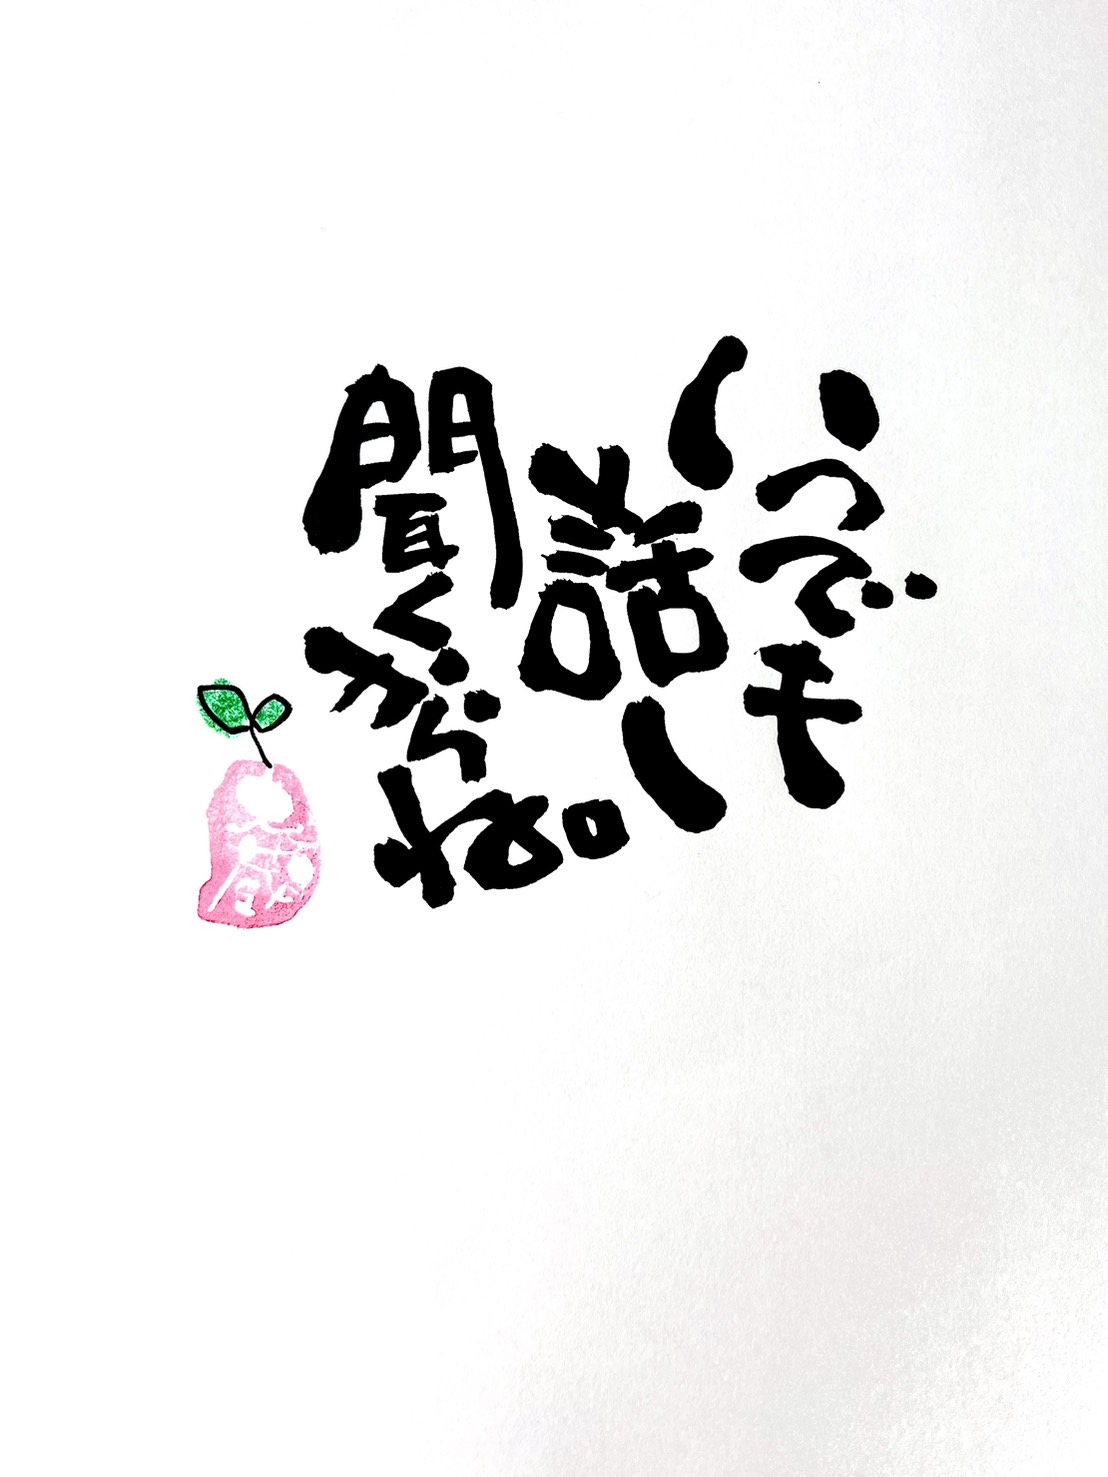 いつでも
話し
聞くからね。